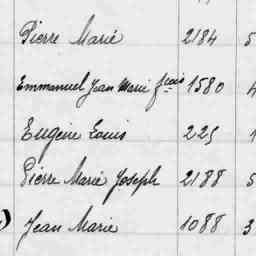 Pierre Marié 2184 5
Emmanuel Jean Marie fçois 1580 4
Eugène Louis 225 1
Pierre Marie Joseph 2188 5
) Jean Marie 1088 3